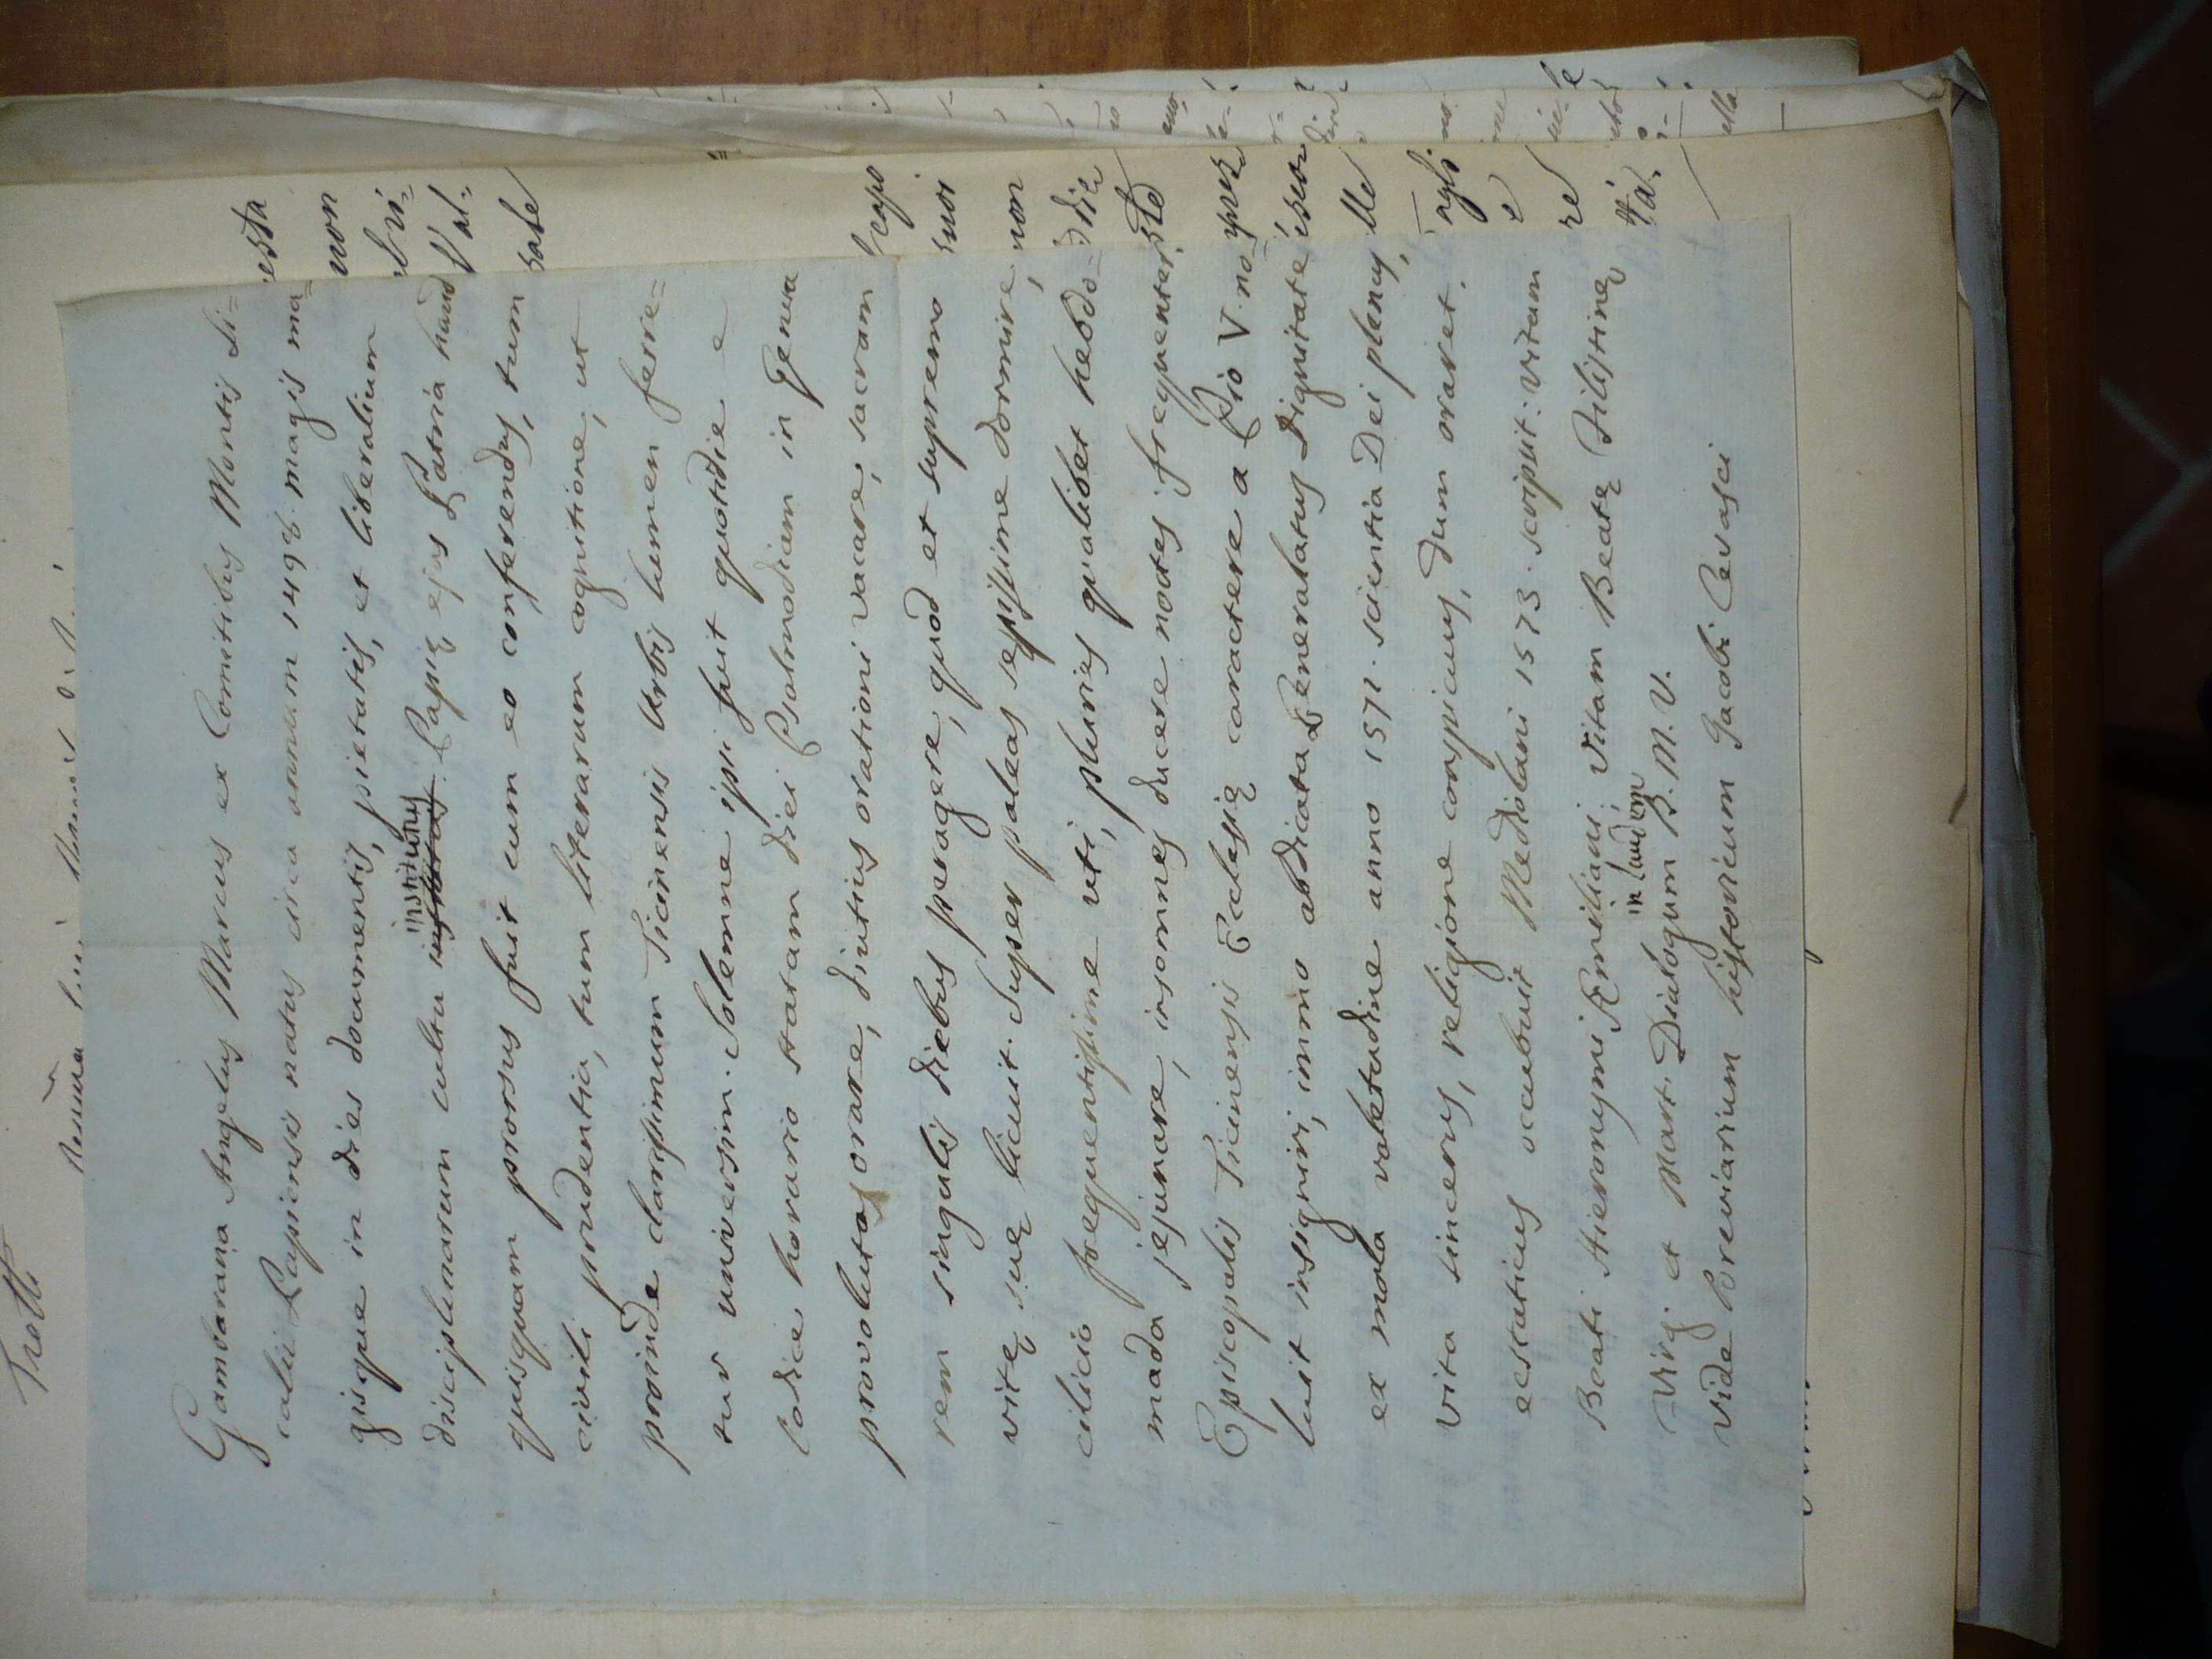 Trotti
Gambarana Angelus Marcus ex Comitibus Montis Si=
calii Papiensis natus circa annum 1498. magis ma=
gisque in dies documentis, pietatis, et liberalium
disciplinarum cultu institutus Papię ejus Patria haud
quisquam prorsus fuit cum eo conferendus, tum
civili prudentia, tum literarum cognitione, ut
proinde clarissimum Ticinensis Urbis lumen ferre=
tur universim. Solemne ipsi fuit quotidie e
lodice horario statam diei Psalmodiam in genua
provolutus orare, diutius orationi vacare, sacram
rem singulis diebus peragere, quod et supremo
vitę suę licuit. Super paleas sępissime dormire,
cilicio frequentissime uti, pluries qualibet hebdo=
mada jejunare, insomnes ducere noctes frequenter.
Episcopalis Ticinensis Eclesię caractere a Pio V. no=
luit insigniri, immo abdicata Generalatus Dignitate
ex mola valetudine anno 1571. scientia Dei plenus,
vita sincerus, religione conspicuus, dum oraret.
ecstaticus occubuit Mediolani 1573. scripsit: vitam
Beati Hieronymi Emiliani: Vitam Beatę Filistinę
Virg. et Mart. Dialogum in laudem B. M. V.
Vide Breviarium historicum Jacobi Cevasci
esta
non
bri=
Val=
sate
capo
suoi
non
dili
sto
le
agli
e
re
tá.